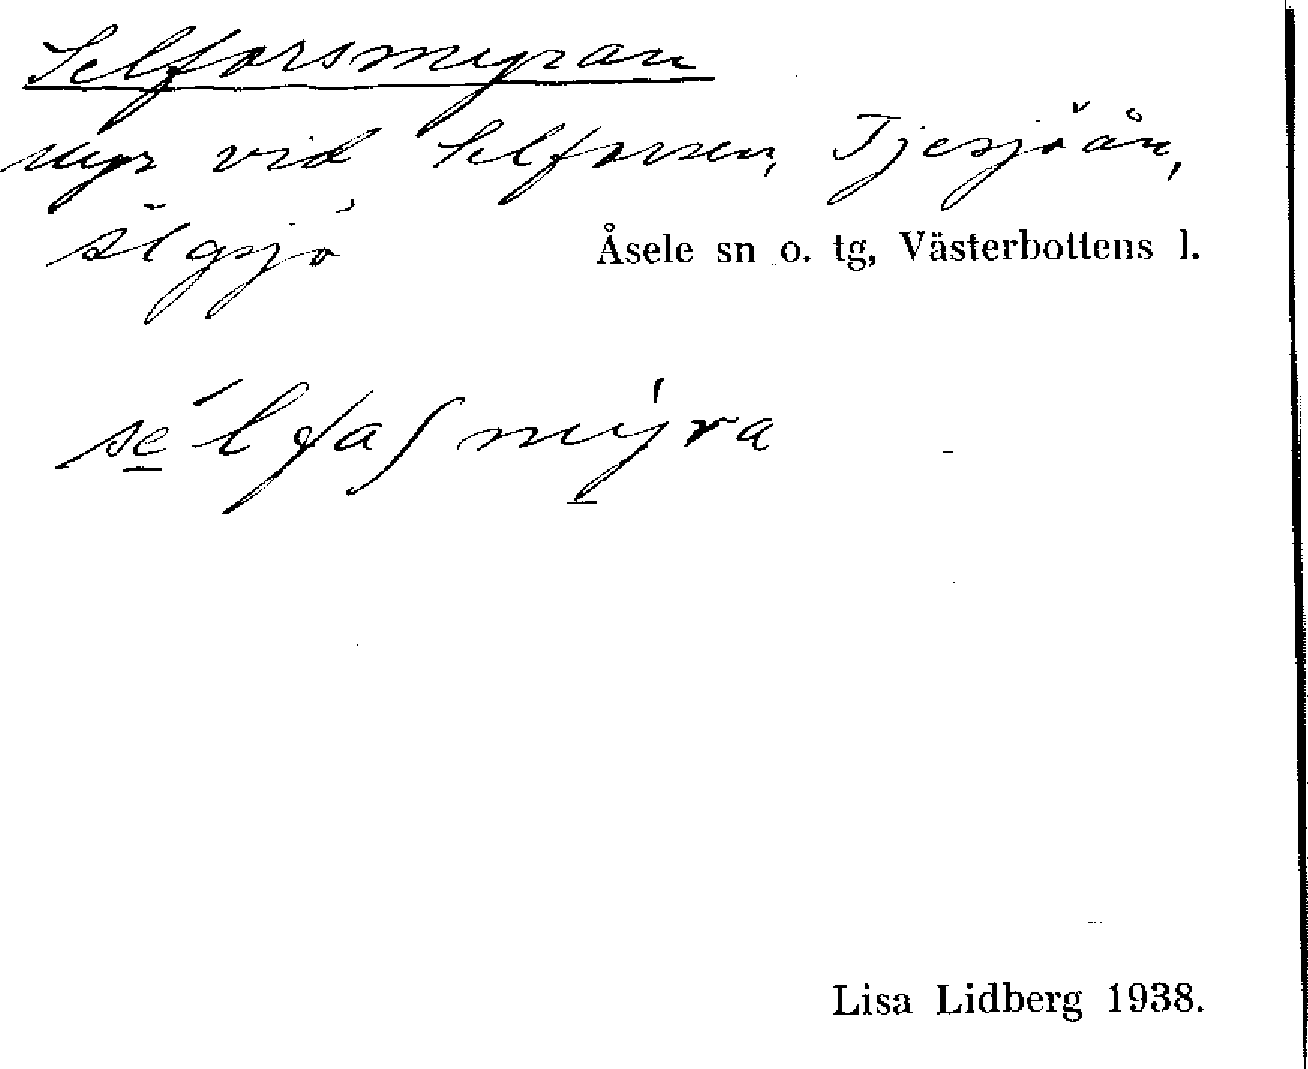 Selforsmyran
myr vid Selforsen, Tjesjöån,
Älgsjö Åsele sn o. tg, Västerbottens l.
se̱ʹlfaʃmy̱ʹra
Lisa Lidberg 1938.